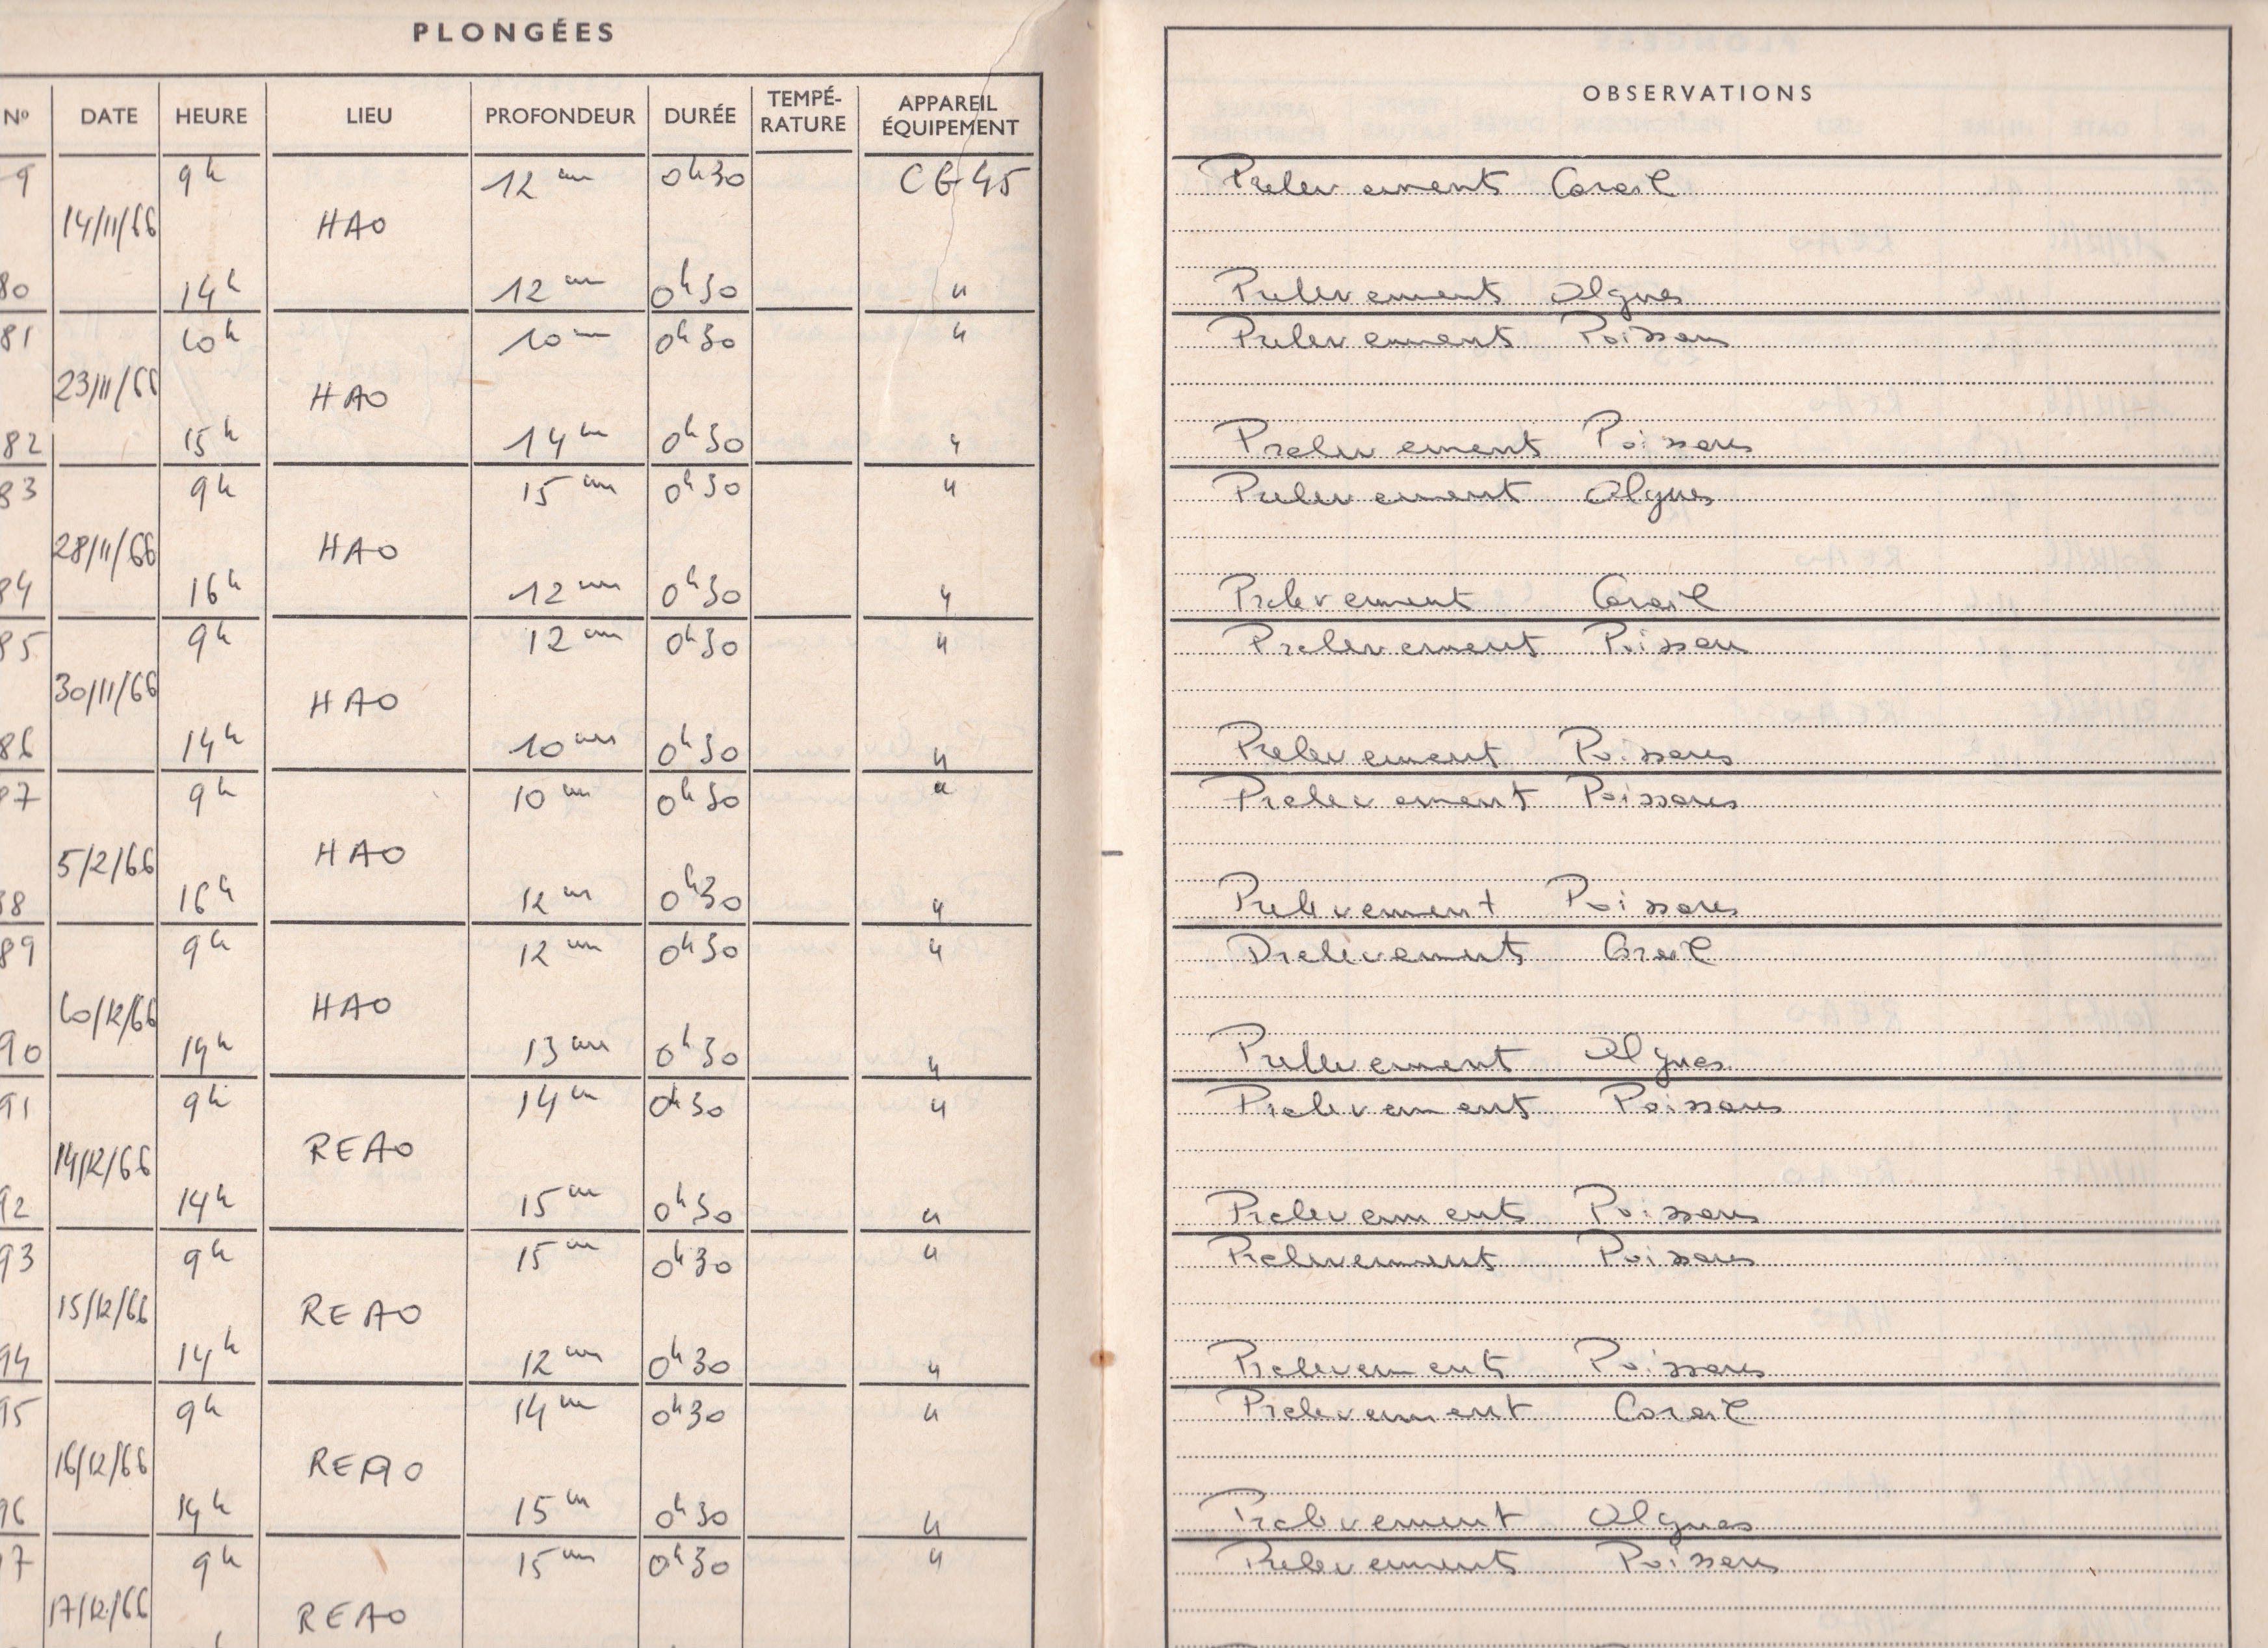 PLONGÉES
Nº DATE HEURE LIEU PROFONDEUR DURÉE TEMPÉ-RATURE APPAREIL ÉQUIPEMENT OBSERVATIONS
9 9h 12 m 0h30 CG45 Prelevements Corail
14/11/66 HAO
80 14h 12 m 0h30 " Prelevement Algues
81 10h 10 m 0h30 " Prelevement Poisson
23/11/66 HAO
82 15h 14 m 0h30 " Prelevement Poissons
83 9h 15 m 0h30 " Prelevement Algues
28/11/66 HAO
84 16h 12 m 0h30 " Prelevement Corail
85 9h 12 m 0h30 " Prelevement Poisson
30/11/66 HAO
86 14h 10 m 0h30 " Prelevement Poissons
87 9h 10 m 0h30 " Prelevement Poissons
5/2/66 HAO
88 16h 12 m 0h30 " Prelevement Poissons
89 9h 12 m 0h30 " Prelevement Corail
10/12/66 HAO
90 14h 13 m 0h30 " Prellevement Algues
91 9h 14 m 0h30 " Prelevement Poissons
14/12/66 REAO
92 14h 15 m 0h30 " Prelevements Poissons
93 9h 15 m 0h30 " Prelevement Poissons
15/12/66 REAO
94 14h 12 m 0h30 " Prelevement Poissons
95 9h 14 m 0h30 " Prelevement Corail
16/12/66 REAO
96 14h 15 m 0h30 " Prelevement Algues
97 9h 15 m 0h30 " Prelevement Poissons
17/12/66 REAO